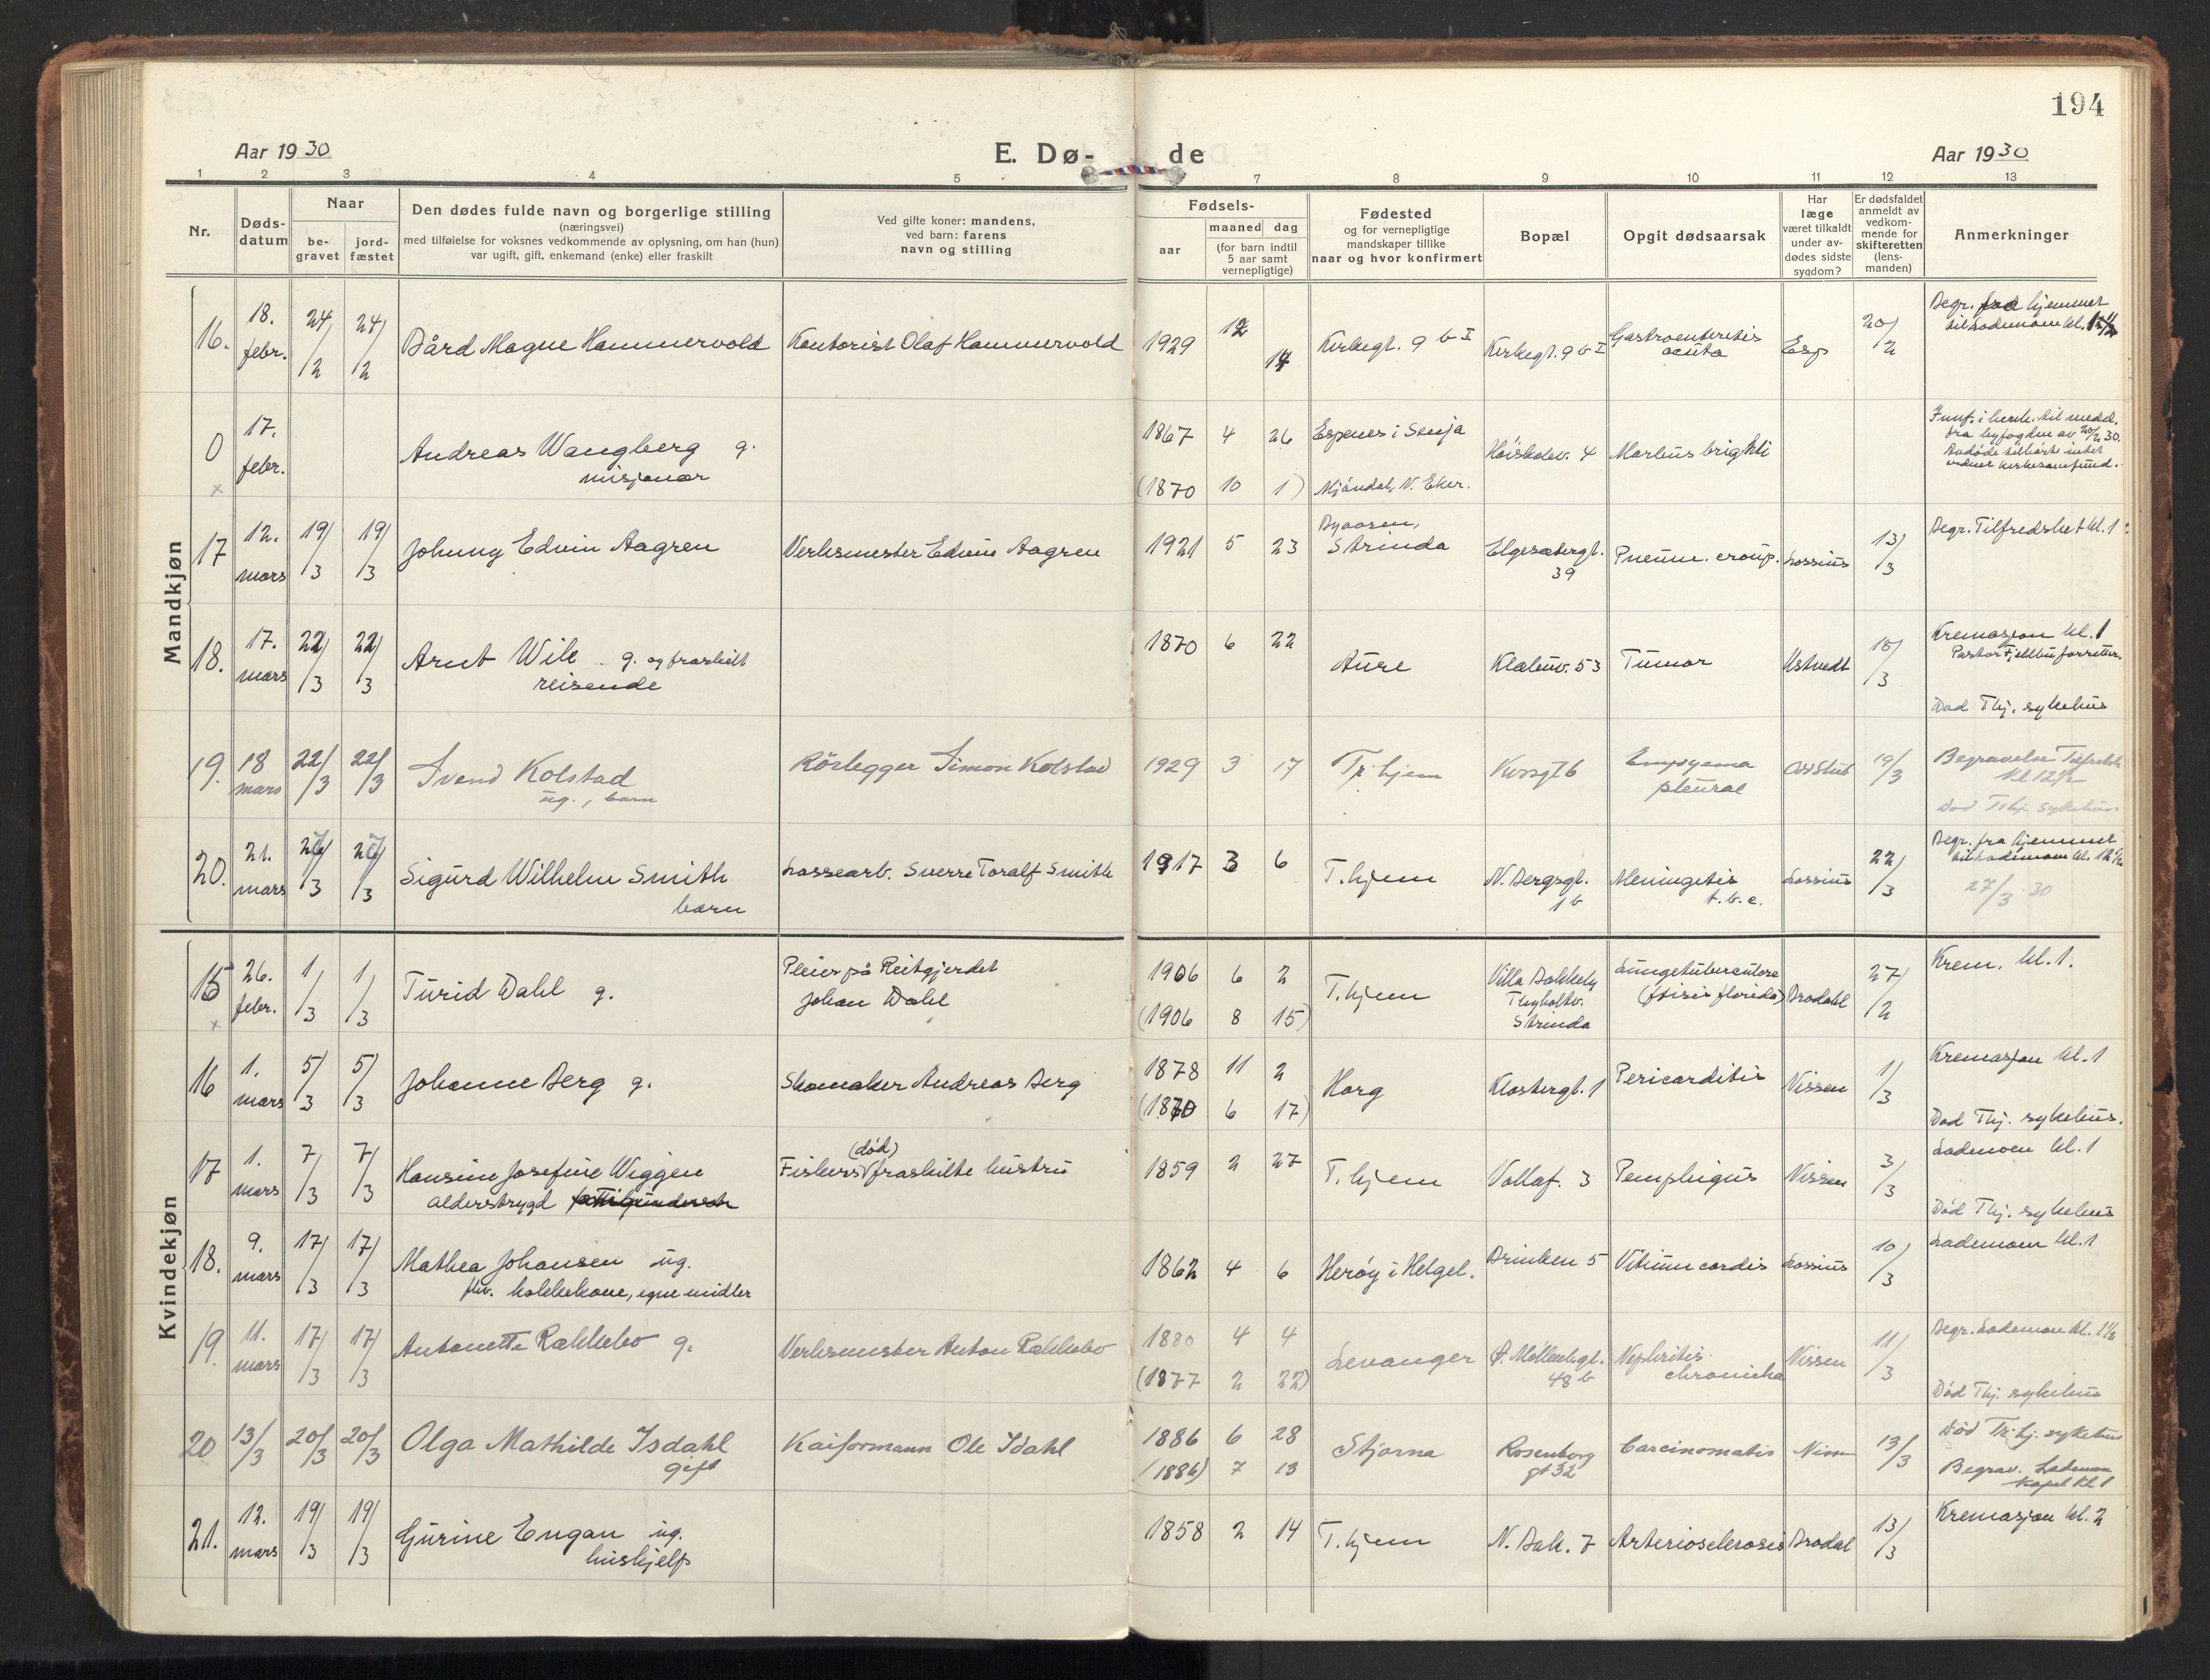 194
Aar 1930
E. Dø-
de
Aar 1930
1 2 3 4 5 7 8 9 10 11 12 13
Nr.
Døds-
datum
Naar
be-
gravet
jord-
fæstet
Den dødes fulde navn og borgerlige stilling
(næringsvei)
med tilføielse for voksnes vedkommende av oplysning, om han (hun)
var ugift, gift, enkemand (enke) eller fraskilt
Ved gifte koner: mandens,
ved barn: farens
navn og stilling
Fødsels-
aar
maaned dag
(for barn indtil
5 aar samt
vernepligtige)
Fødested
og for vernepligtige
mandskaper tillike
naar og hvor konfirmert
Bopæl
Opgit dødsaarsak
Har
læge
været tilkaldt
under av-
dødes sidste
sygdom?
Er dødsfaldet
anmeldt av
vedkom-
mende for
skifteretten
(lens-
manden)
Anmerkninger
Mandkjøn
16. 18. febr. 24/2 24/2 Bård Magne Hammervold Kontorist Olaf Hammervold 1929 12 14 Kirkegt. 9 b I Kirkegt. 9 b I Gastroenteritis
acuta Esp 20/2 Begr. fra hjemmet
til Lademoen kl.
0 17. febr. Andreas Wangberg g.
misjonær 1867 4 26 Espenes i Senja Høiskolev. 4 Morbus brightii
x (1870 10 1) Mjøndal, N. Eker.
fra byfogden av 20/2 30.
17 12. mars 19/3 19/3 Johnny Edvin Aagren Verksmester Edvin Aagren 1921 5 23 Byaasen,
Strinda Elgesætergt.
39 Pneum. croup. Lossius 13/3 Begr. Tilfredshet kl. 1
18. 17. mars 22/3 22/3 Arnt Wik g. og fraskilt
reisende 1870 6 22 Aure Klæbuv. 53 Tumor Ustvedt 18/3 Kremasjon kl. 1
Pastor Fjellbu forretter.
Død Thj. sykehus
19. 18 mars 22/3 22/3 Svend Kolstad
ug., barn Rörlegger Simon Kolstad 1929 3 17 Tr.hjem Korsgt 6 Empyema
pleural 19/3 Begravelse
Kl 12½
Død Trhj. sykehus
20. 21. mars 3 3 Sigurd Wilhelm Smith
barn Lossearb. Sverre Toralf Smith 1917 3 6 T.hjem N. Bergsgt.
1 b Meningitis
t.b.c. Lossius 22/3 Begr. fra hjemmet
til Lademoen kl. 12½
27/3 30
Kvindekjøn
15 26. febr. 1/3 1/3 Turid Dahl g. Pleier på Reitgjerdet
Johan Dahl 1906 6 2 T.hjem Villa Bakkely
Tyholtv.
Strinda Lungetuberculose
(ftisis florida) Brodahl 27/2 Krem. kl. 1.
x (1906 8 15)
16 1. mars 5/3 5/3 Johanne Berg g. Skomaker Andreas Berg 1878 11 2 Horg Klostergt. 1 Pericarditis Nissen 1/3 Kremasjon kl. 1
(1870 6 17) Død Thj. sykehus.
17 1. mars 7/3 7/3 Hansine Josefine Wiggen
alderstrygd (død)
Fiskers fraskilte hustru 1859 2 27 T.hjem Vollaf. 3 Pemphigus Nissen 3/3 Lademoen kl. 1
Død Thj. sykehus
18. 9. mars 17/3 17/3 Mathea Johansen ug.
fhv. kokkekone, egne midler 1862 4 6 Herøy i Helgel. Brinken 5 Vitium cordis Lossius 10/3 Lademoen kl. 1
19. 11. mars 17/3 17/3 Antonette Rækkebo g. Verksmester Anton Rækkebo 1880 4 4 Levanger Ø. Møllenbgt.
48 b Nephritis
chronicha Nissen 11/3 Begr. Lademoen kl. 1½
(1877 2 22) Død Thj. sykehus
20 13/3 20/3 20/3 Olga Mathilde Isdahl
gift Kaiformann Ole Isdahl 1886 6 28 Stjørna Rosenborg
gt 32 Carcinomatis Nissen 13/3 Død Tr.hj. sykehus
(1886) 7 13 Begrav. Lademoen
kapel kl 1
21. 12. mars 19/3 19/3 Gurine Engan ug.
hushjelp 1858 2 14 T.hjem N. Bak. 7 Arteriosclerosis Brodal 13/3 Kremasjon kl. 2